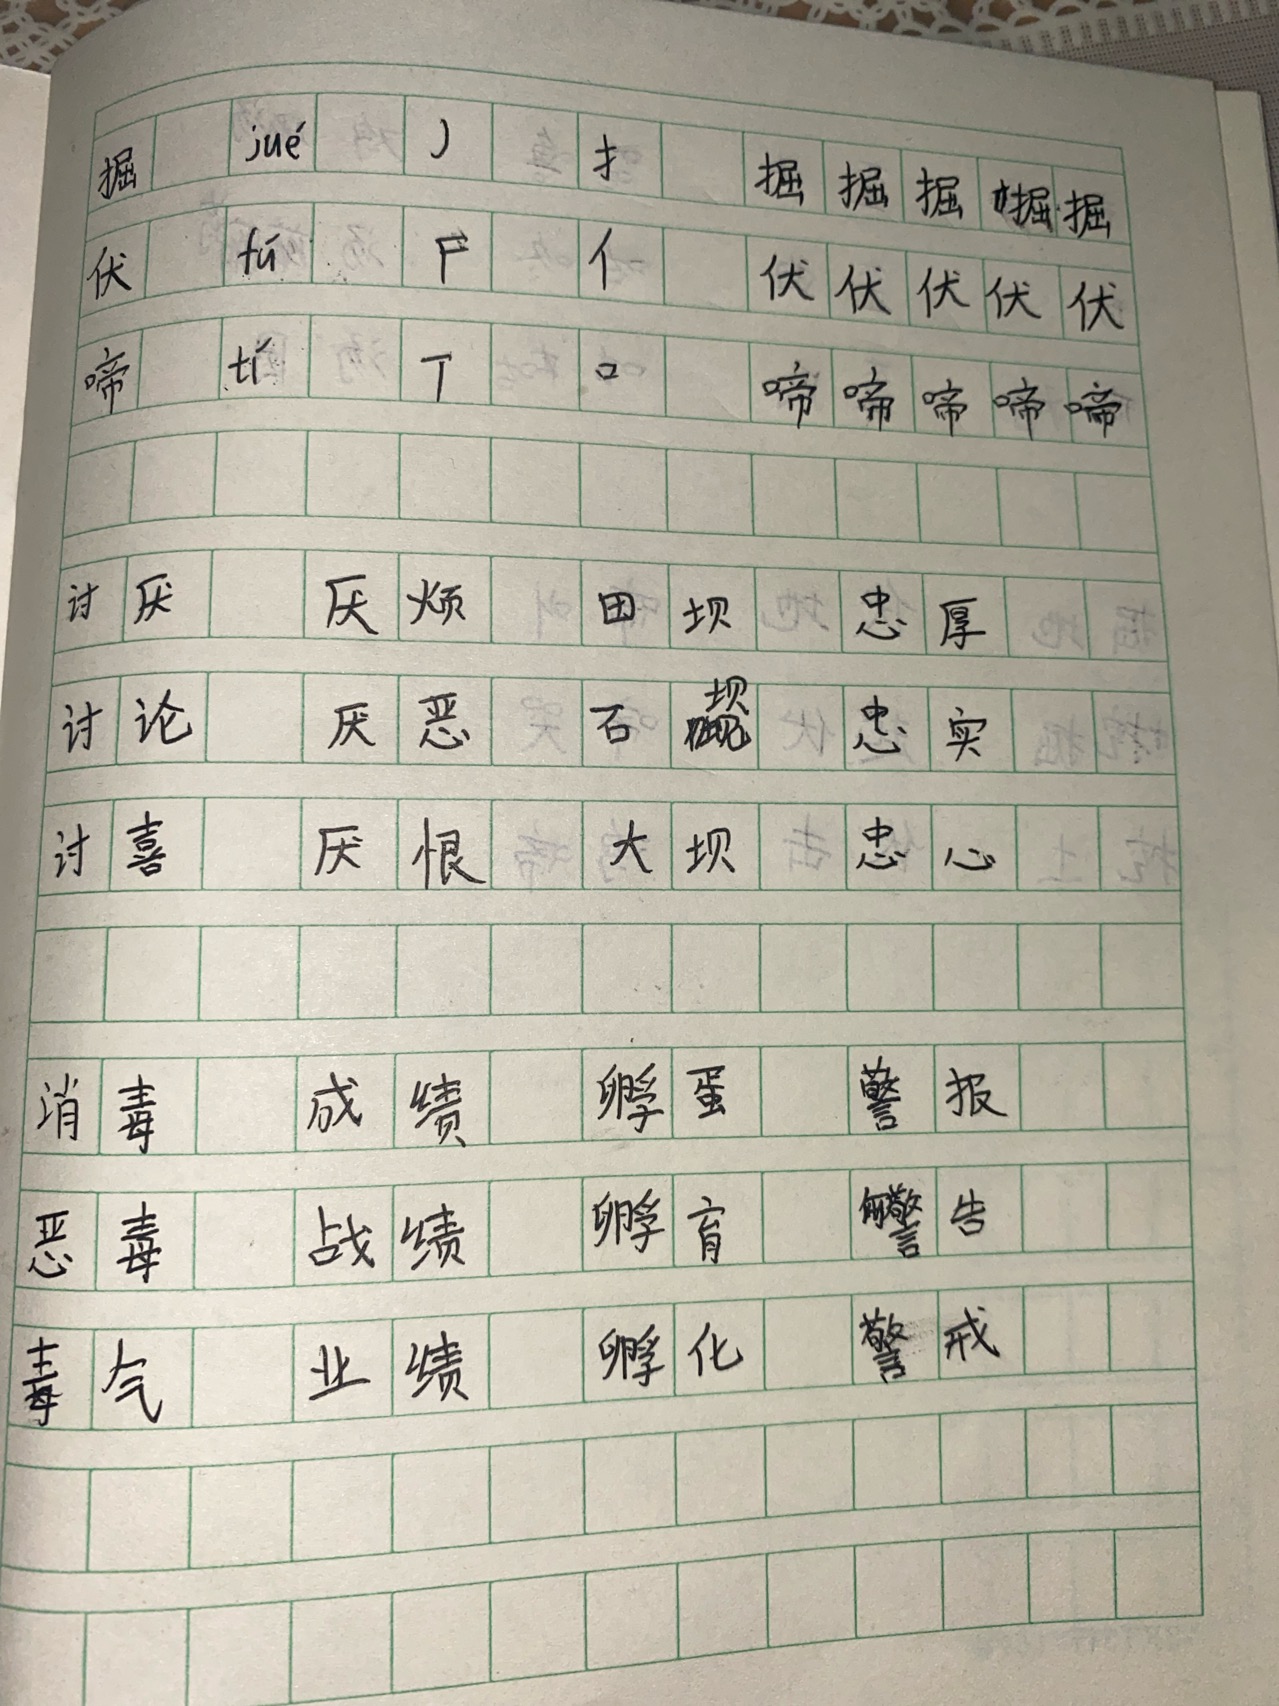 掘 jué J 扌 掘 掘 掘 掘 掘
伏 fú F 亻 伏 伏 伏 伏 伏
啼 tí T 口 啼 啼 啼 啼 啼
讨厌 厌烦 田坝 忠厚
讨论 厌恶 石坝 忠实
讨喜 厌恨 大坝 忠心
消毒 成绩 孵蛋 警报
恶毒 战绩 孵育 警告
毒气 业绩 孵化 警戒